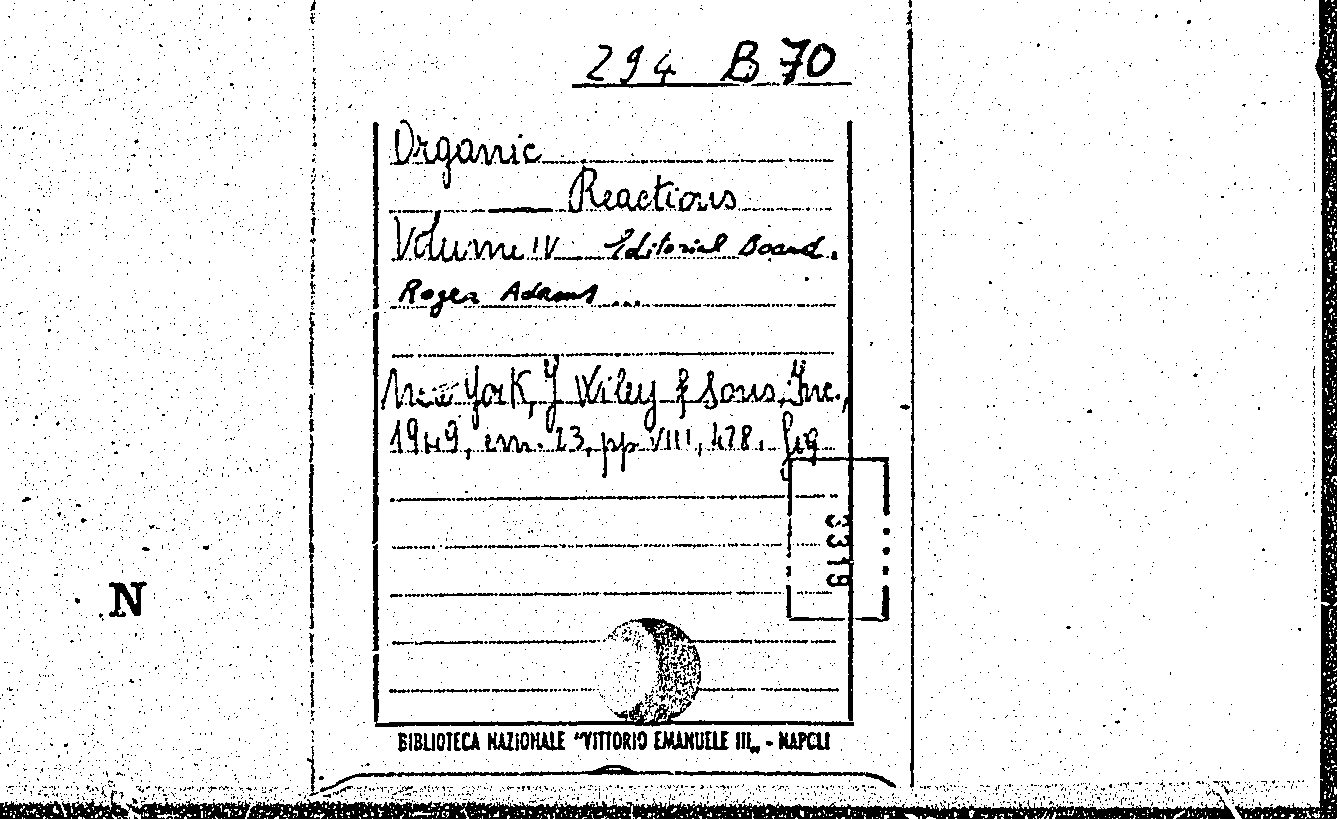 294 B 70
Organic
Reactions
Volume IV Editorial Board.
Roger Adams ...
New York, J Wiley & Sons, Inc.,
1949, cm. 23, pp VIII, 428. fig
3319
N
BIBLIOTECA NAZIONALE "VITTORIO EMANUELE III„ - NAPOLI